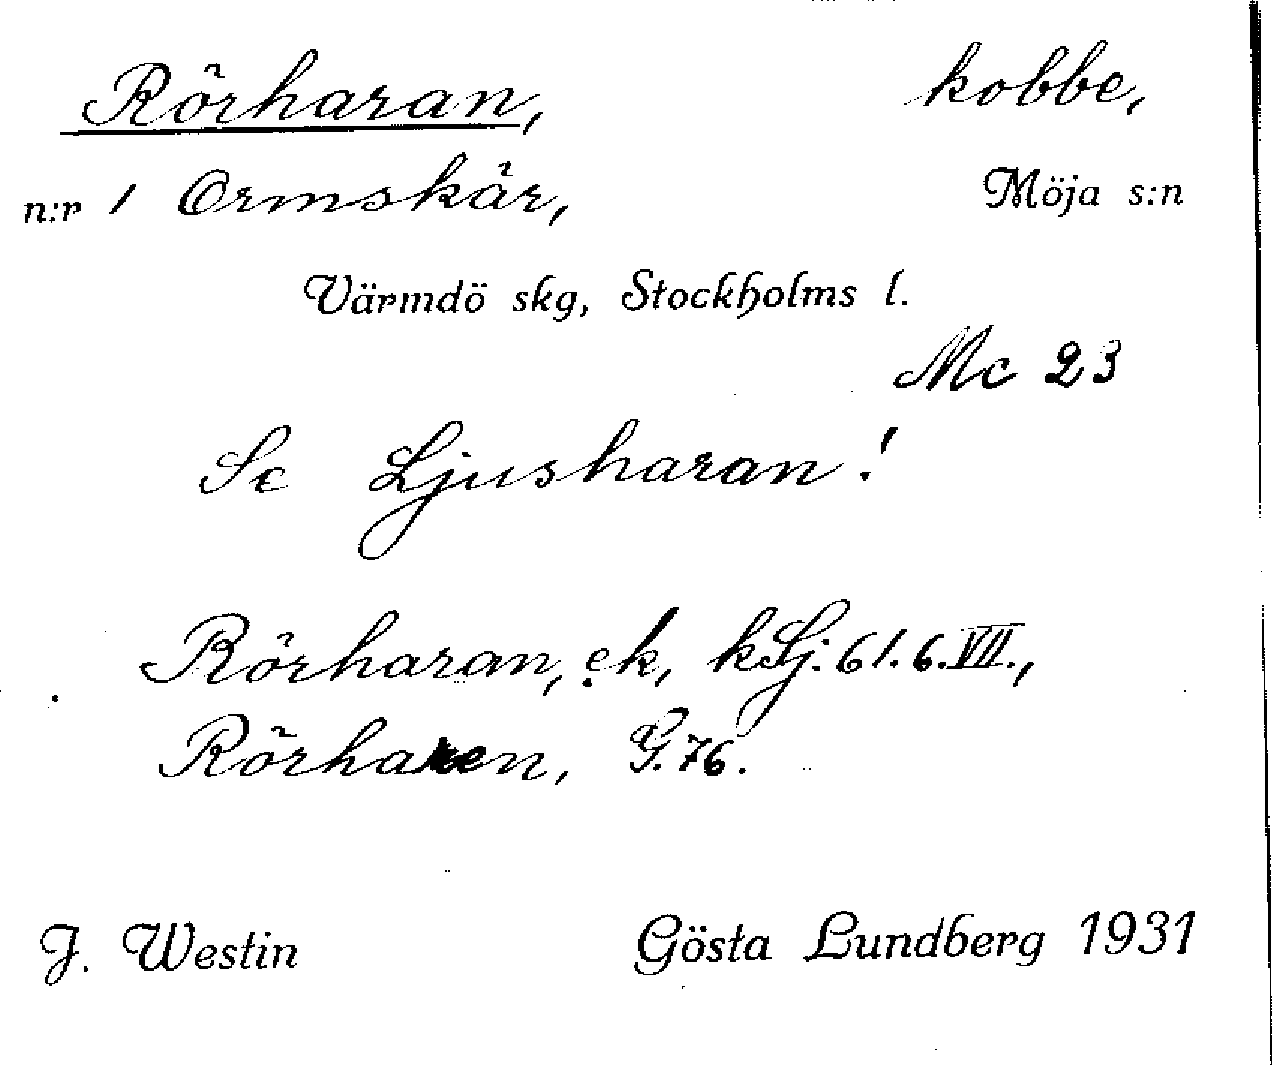 Rörharan, kobbe,
n:r 1 Ormskär, Möja s:n
Värmdö skg, Stockholms l.
Mc 23
Se Ljusharan!
Rörharan, ek, kLj. 61.6.VII.,
Rörharen, G. 76.
J. Westin Gösta Lundberg 1931